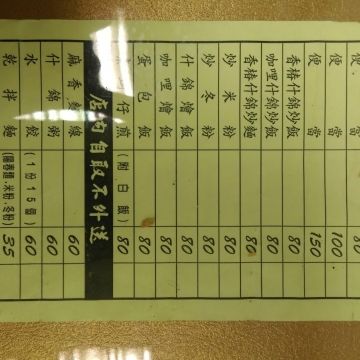 便當 80
便當 100
便當 150
香椿什錦炒飯 80
咖哩什錦炒飯 80
香椿什錦炒麵 80
炒米粉 80
炒冬粉 80
什錦燴飯 80
咖哩燴飯 80
蛋包飯 80
仔煎(附白飯) 80
店內自取不外送
麻香麵線 60
什錦粥 60
水餃(1份15個) 60
乾拌麵(陽春麵·米粉·冬粉) 35